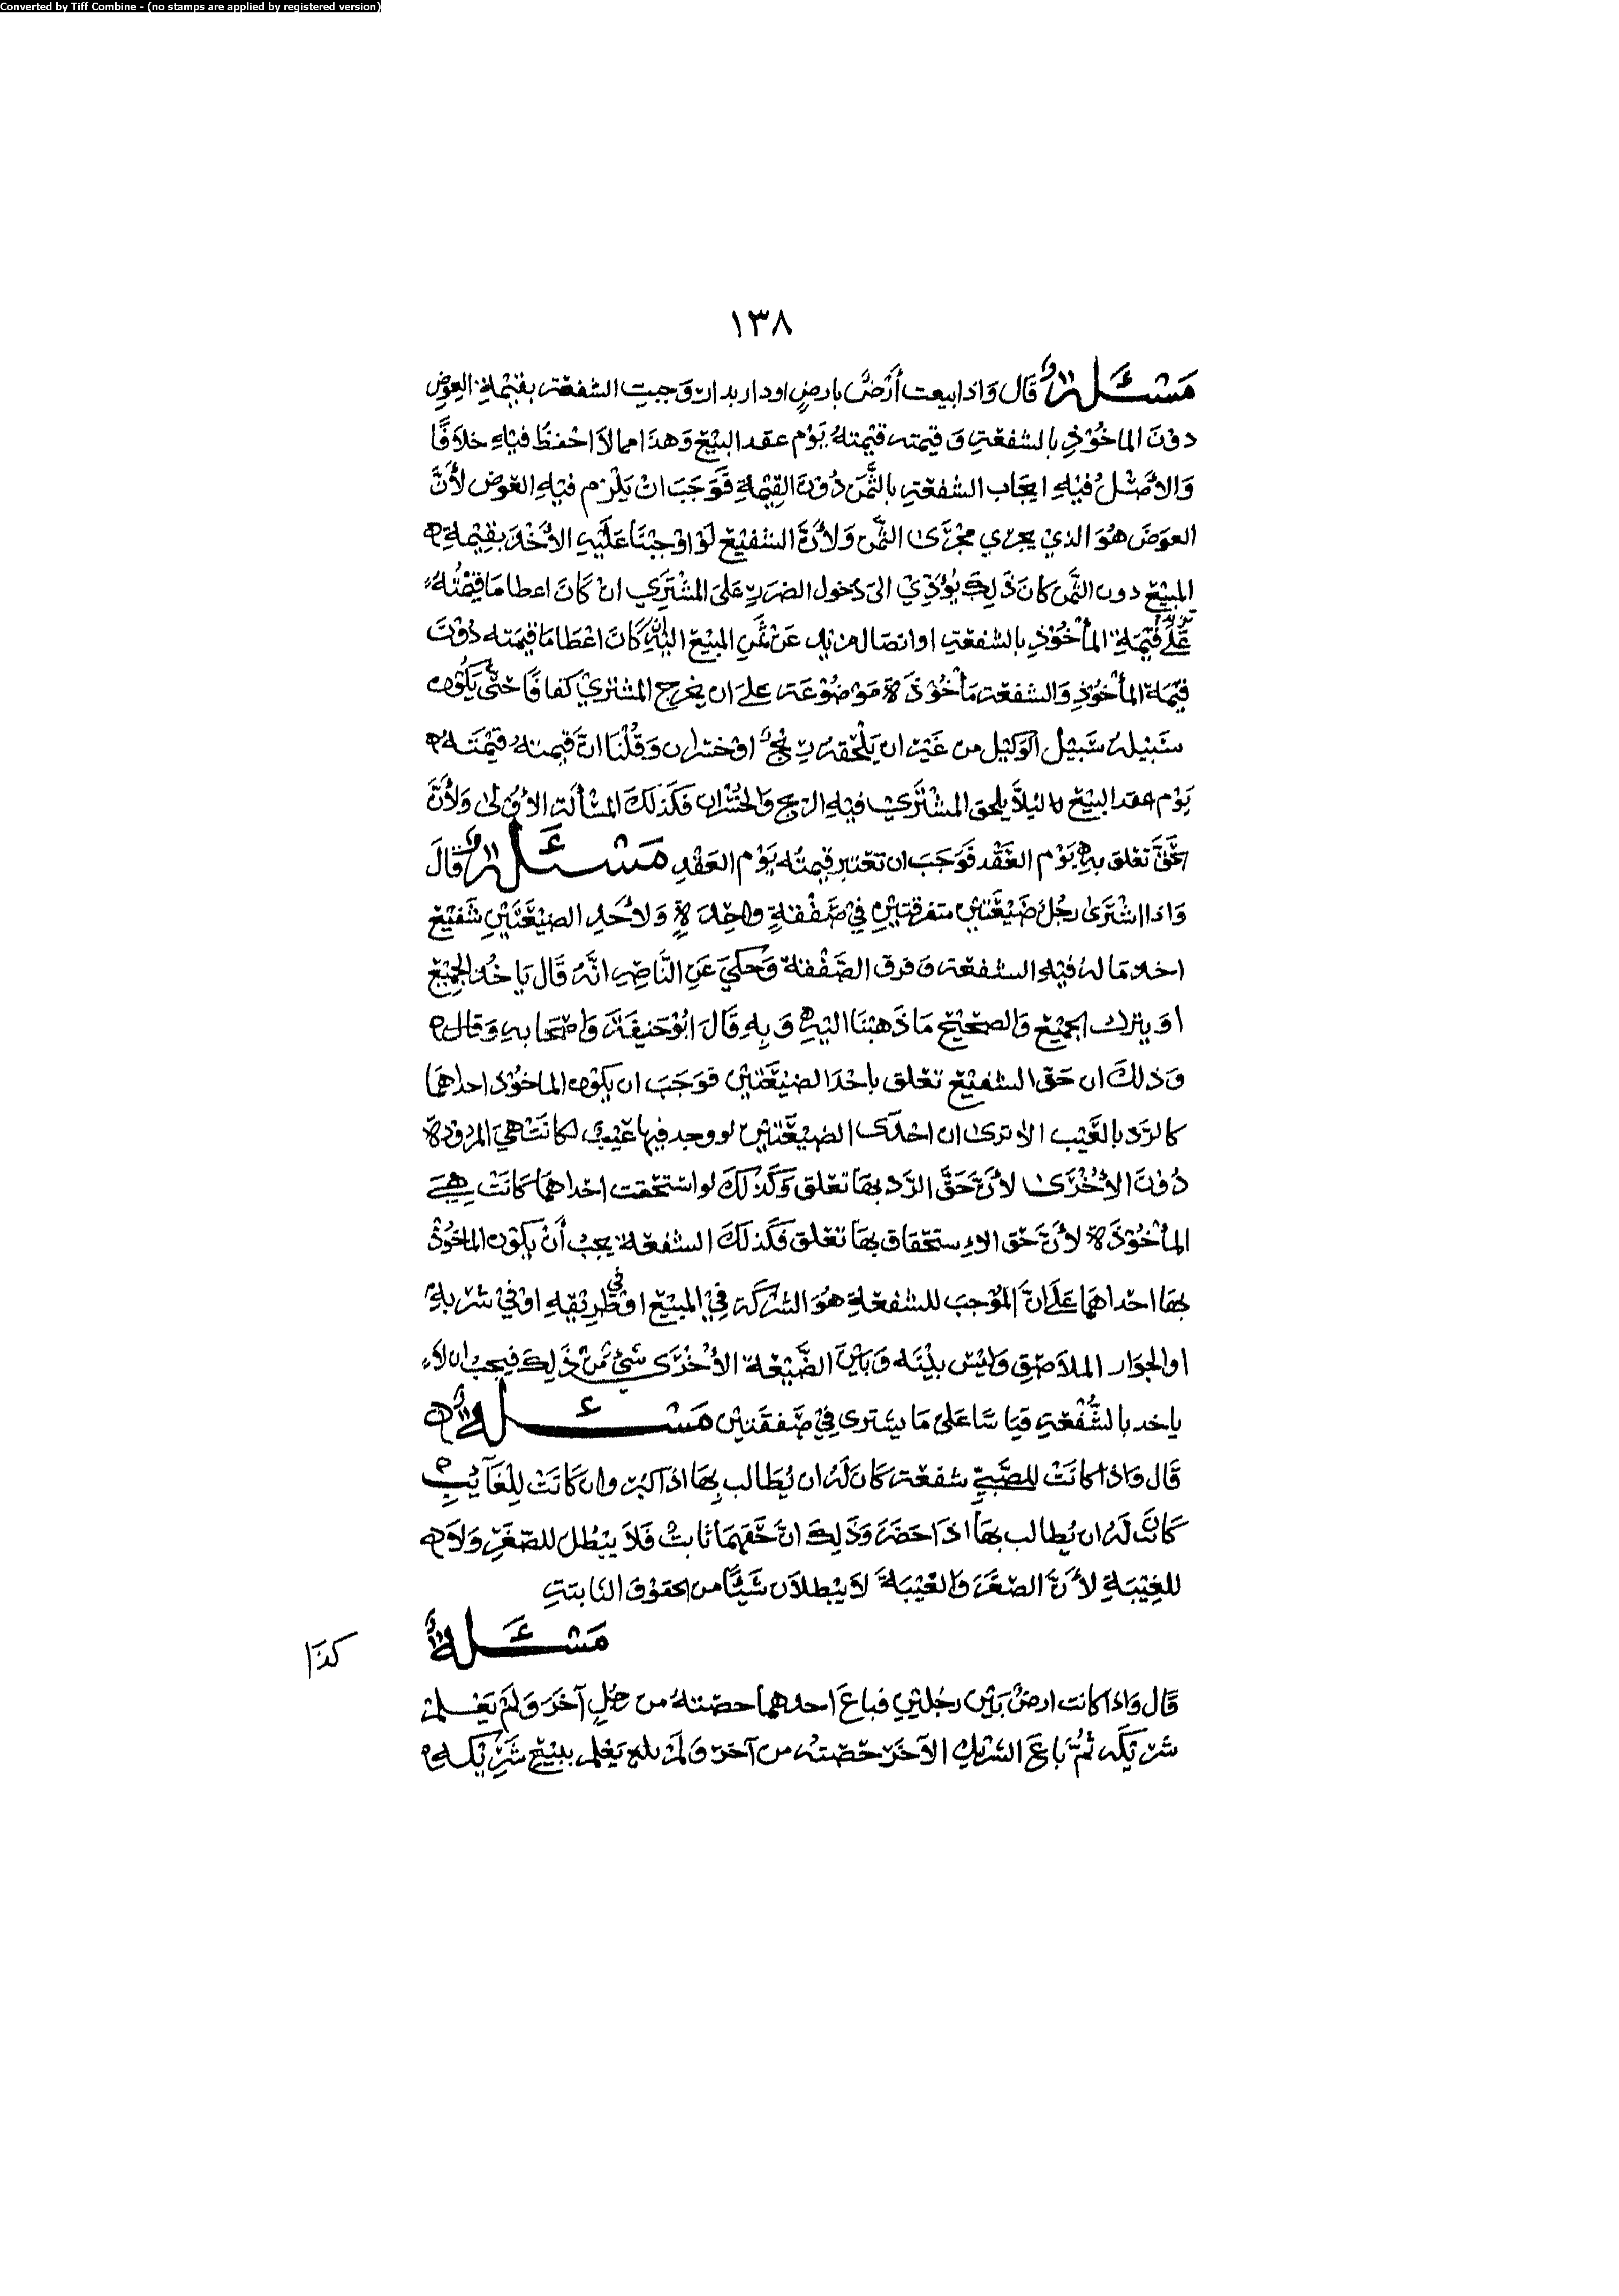 Converted by Tiff Combine - (no stamps are applied by registered version)
١٣٨
مَسْئَلة قَال وَاذا بيعت أرْضٌ بارضٍ او دار بدار وَجبت الشفعَة بقيْمةِ العِوضِ
دوْنَ الماخُوْذِ بالشفعَةِ وَقيمته قيْمتهُ يَوْم عقد البيْع وَهذا مما لا احْفظُ فيْهِ خلافًا
وَالأصْلُ فيْهِ ايجاب الشفعَةِ بالثَّمَن دُوْنَ القِيْمةِ فَوَجَبَ انْ يَلْزم فيْهِ العَوض لأنَّ
العوَض هُوَ الذيْ يجرْي مجْرَى الثمَن وَلأنَّ الشفيْعَ لَوْ اوْجبْنَا عَلَيْهِ الأخْذَ بقِيْمةِ
المبيْع دون الثَّمَن كانَ ذٰلِكَ يُؤَدِّيْ الىَ دُخول الضررِ عَلىَ المشْتَرِي انْ كَانَ اعطا مَا قيْمتُهُ
تزيد عَلَى قيْمَةِ المأخُوْذِ بالشفعَةِ او ايصَاله زيله عَنْ ثمَنِ المبيْع اليْهِ كَانَ اعْطَا مَا قيْمَته دُوْنَ
قيْمَة المأخُوْذِ وَالشفعَة مَأخُوْذَة مَوْضُوْعَة عَلىَ ان يخرج المشتريْ كفافًا حَتَّى يَكُوْن
سَبيْلهُ سَبيْل الوَكيْل من غَيْر ان يَلْحَقهُ ربْحٌ اوْ خسْران وَقُلْنَا انَّ قيمتهُ قيْمَتهُ
يَوْم عقد البَيْع لئلاَّ يلحق المشْتَريْ فيْهِ الربح وَالخُسْران فكَذلكَ المسْألة الأوْلى وَلأنَّ
الحَقَّ تعَلق بهِ يَوْم العَقْد فَوَجَبَ ان تعْتبر قيْمتُه يَوْم العَقْدِ مَسْئَلة قالَ
وَاذا اشْتَرَىٰ رجُل ضَيْعَتَيْنِ متفرقتيْنِ فيْ صَفْقةٍ واحِدَةٍ وَلأَحَدِ الضيْعَتَيْنِ شَفيْع
اخذ مَا لهُ فيْهِ الشفعَة وَفرق الصَّفْقة وَحُكيَ عَنِ النَّاصِر انَّهُ قَال يَاخُذ الجَميْع
اوْ يترك الجَميْع وَالصحيْح مَا ذَهبْنَا اليْهِ وَبِهِ قَالَ ابُوْ حَنيفَة وَاصْحَابه وَقال
وَذلكَ ان حَقَّ الشفيْع تعَلق باحْدَا الضيْعَتيْن فوَجَبَ ان يكوْن الماخُوْذ احداهمَا
كالردّ بالعَيْب الا ترىٰ ان احْدَى الضيْعَتَيْن لو وجد فيهَا عَيْبٌ لكانَتْ هيَ المردُوْدة
دُوْنَ الأُخْرَىٰ لأنَّ حَقَّ الردّ بهَا تعَلق وَكَذٰلكَ لو اسْتحقت احْداهمَا كانَتْ هِيَ
المأخُوْذَة لأنَّ حَق الاِستحْقاق بهَا تعَلق فكَذلكَ الشفعة يجبُ أنْ يكوْن الماخُوْذ
بهَا احداهمَا عَلىَ انَّ المُوْجبَ للشفعةِ هُوَ الشركَة فيْ المبيْع اوْ فيْ طريْقهِ اوْ فيْ شربهِ
او الجوَار الملاصِقِ وَليْسَ بيْنَه وَبَيْنَ الضَّيْعَة الأُخْرَى شَيْءٌ مّنْ ذٰلِكَ فيجبُ ان لاَ
ياخذ بالشُّفْعَةِ قيَاسًا عَلىَ مَا يشترى فِيْ صَفقَتَيْن مَسْئَلة
قَال وَاذا كانَتْ للصَّبيِّ شفعَة كَانَ لَهُ ان يُطَالب بهَا اذا كبُر وان كَانَتْ لِلْغَآئِبِ
كَانَ لَهُ ان يُطالب بهَا اذَا حَضَرَ وَذٰلِكَ انَّ حَقَّهمَا ثابتٌ فَلاَ يبْطُل للصِّغَرِ وَلاَ
للغِيْبَةِ لأنَّ الصغَر وَالغَيْبَة لاَ يبْطلاَن شَيْئًا من الحقوْق الثابتةِ
مَسْئَلة
كذا
قَال وَاذا كانت ارضٌ بَيْن رجُليْنِ فباعَ احدهما حصّتهُ من رجُلٍ آخَرَ وَلَمْ يَعْلمْ
شرَيْكَه ثُمَّ بَاعَ الشريْك الآخَر حصّتهُ من آخَر وَلَمْ يعْلم ببيْع شَرِيْكهِ